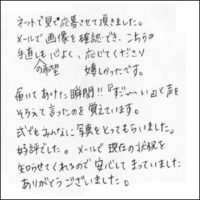 ネットで見て応募させて頂きました。
メールで画像を確認でき、こちらの
手直しも心よく、応じてくださり
の希望 嬉しかったです。
届いてあけた瞬間!!「すご〜い」と声を
そろえて言ったのを覚えています。
式でもみんなに写真をとってもらいました。
好評でした。メールで現在の状況を
知らせてくれるので安心してまっていました
ありがとうございました。